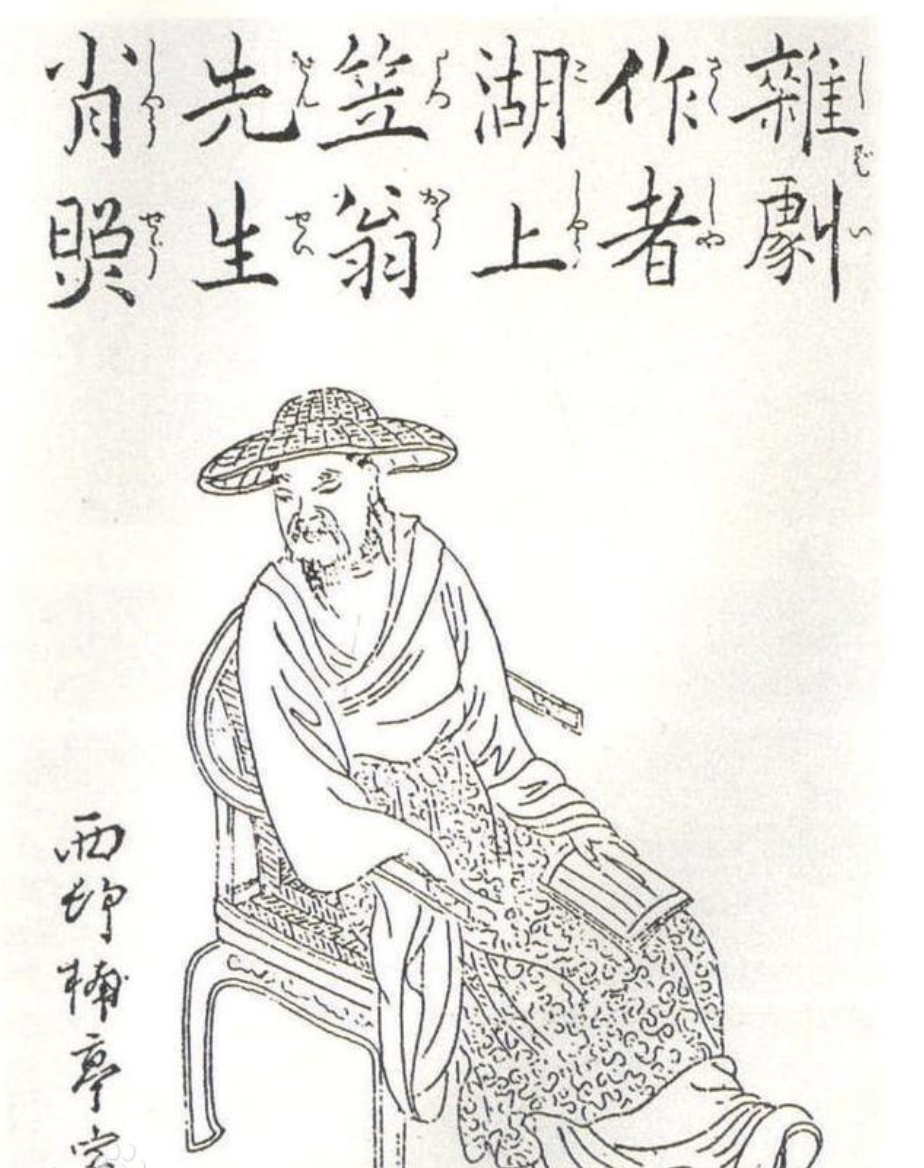 雜劇
しばい
作者
さくしや
湖上
こしやう
笠翁
りつおう
先生
せんせい
肖照
しやうせう
西邨楠亭